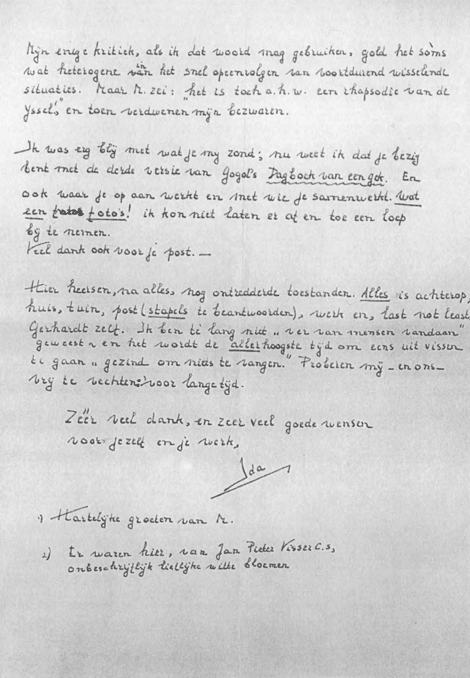 Mijn enige kritiek, als ik dat woord mag gebruiken, gold het sòms
wat heterogene in het snel opeenvolgen van voortdurend wisselende
situaties. Maar M. zei: "het is toch a.h.w. een rhapsodie van de
IJssel", en toen verdwenen mijn bezwaren.
Ik was erg blij met wat je my zond; nu weet ik dat je bezig
bent met de derde versie van Gogol's Dagboek van een gek. En
ook waar je op aan werkt en met wie je samenwerkt. Wat
een foto's! ik kon niet laten er af en toe een loep
by te nemen.
Veel dank ook voor je post. —
Hier heersen, na alles, nog ontredderde toestanden. Alles is achterop,
huis, tuin, post (stapels te beantwoorden), werk en, last not least
Gerhardt zelf. Ik ben te lang niet "ver van mensen vandaan"
geweest en het wordt de allerhoogste tijd om eens uit vissen
te gaan "gezind om niets te vangen." Proberen mij – en ons –
vrij te vechten voor lange tijd.
Zéér veel dank, en zeer veel goede wensen
voor jezelf en je werk,
Ida
1) Hartelijke groeten van M.
2) Er waren hier, van Jan Pieter Visser c.s,
onbeschrijflijk lieflijke witte bloemen